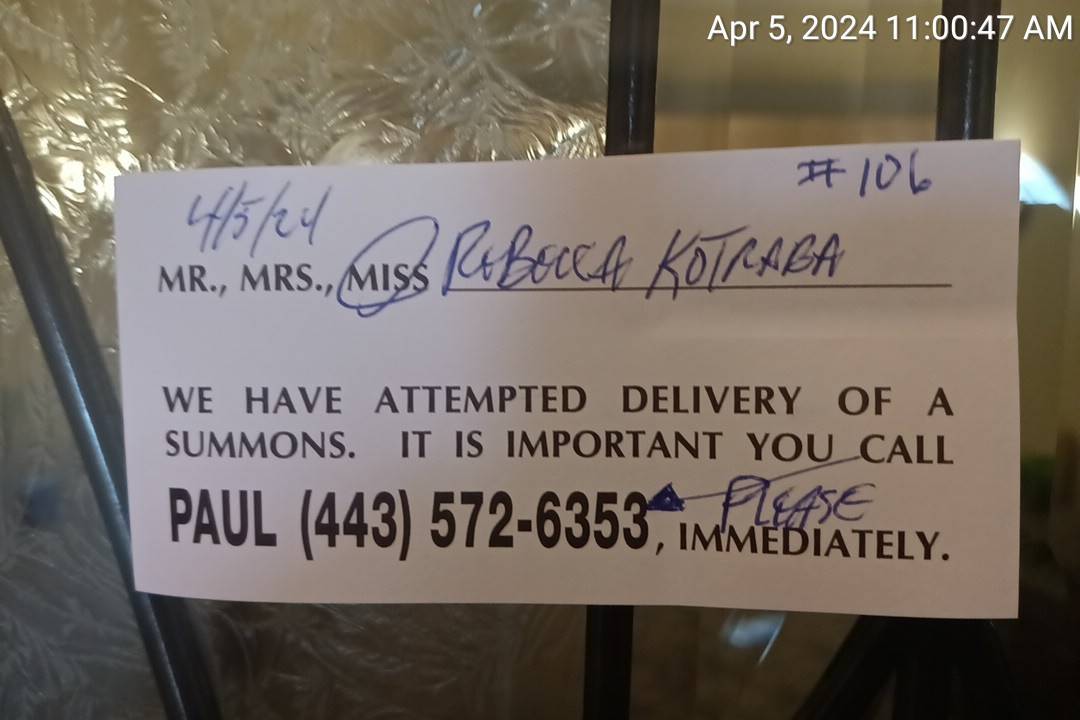 Apr 5, 2024 11:00:47 AM
# 106
4/5/24
MR., MRS., MISS REBECCA KOTRABA
WE HAVE ATTEMPTED DELIVERY OF A
SUMMONS. IT IS IMPORTANT YOU CALL
PLEASE
PAUL (443) 572-6353, IMMEDIATELY.